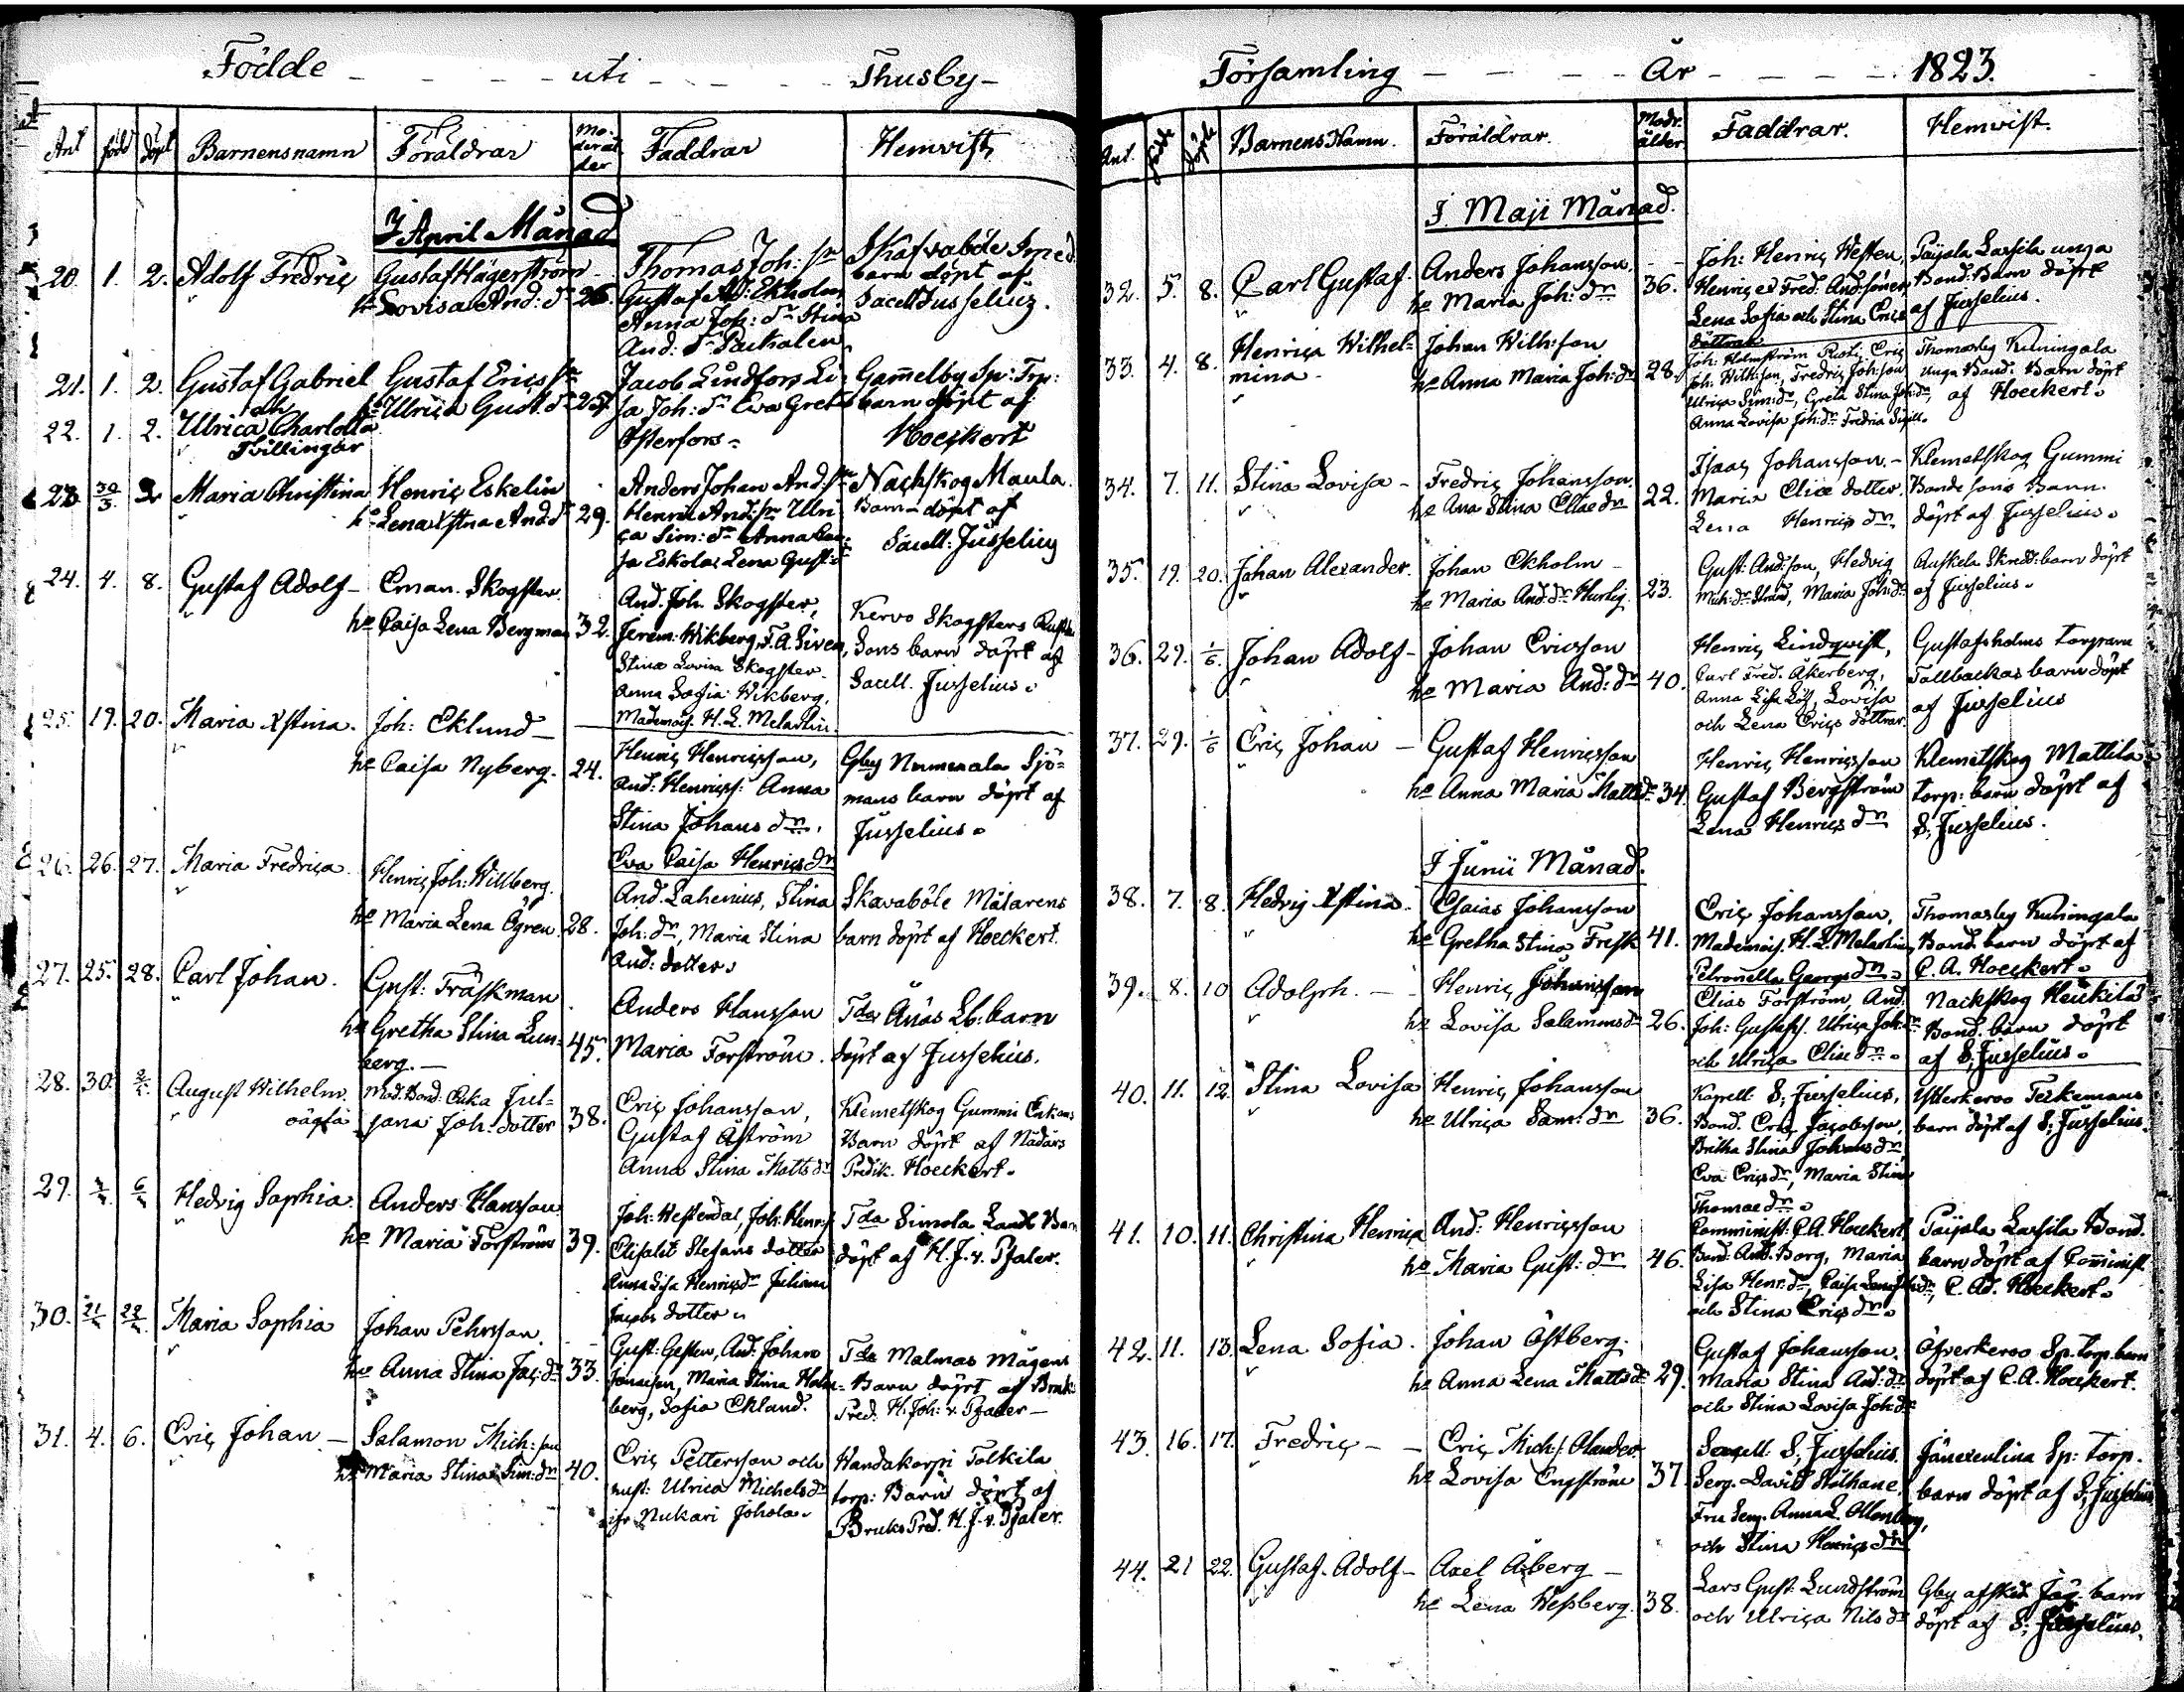 Födde - - - - uti - - - - Thusby -
Ant född döpt Barnensnamn Föräldrar Moderålder Faddrar Hemvist
I April Månad
20. 1. 2. Adolf Fredric
Gustaf Hägerström
hu Lovisa And: dr 26.
Thomas Joh: sn
Gustaf Ad: Ekholm
Anna Joh: dr Stina
And: dr Backalen
Skafvaböle Smed
barn döpt af
Sacell Jusselius.
21. 1. 2. Gustaf Gabriel
och
22. 1. 2. Ulrica Charlotta
Tvillingar
Gustaf Erics sn
hu Ulrica Gust. dr 25
Jacob Lindfors Li
sa Joh: dr Eva Greta
Österfors-
Gam̄elby Sp: Trp:
barn döpt af
Hoeckert
23. 30/3. 2. Maria Christina
Henric Eskelin
hu Lena Xstina And: dr 29.
Anders Johan And. sn
Henric And: sn Ulri
ca Sim: dr Anna Cai
sa Eskola, Lena Gust: dr
Nackskog Maula
Barn - döpt af
Sacell: Jusselius
24. 4. 8. Gustaf Adolf -
Eman. Skogster
hu Caisa Lena Bergman 32.
And. Joh. Skogster,
Jerem: Wikberg, F. A. Siven,
Stina Lovisa Skogster
Anna Sofia Wikberg,
Mademois. H. L. Melartin.
Kervo Skogsters
Sons barn döpt af
Sacell. Jusselius.
25. 19. 20. Maria Xstina.
Joh: Eklund -
hu Caisa Nyberg. 24.
Henric Henricsson,
And: Henricss: Anna
Stina Johans dr.
Eva Caisa Henrics dr
Gby Nummenala Sjö=
mans barn döpt af
Jusselius.
26. 26. 27. Maria Fredrica
Henric Joh: Willberg.
hu Maria Lena Ögren 28.
And. Lahenius, Stina
Joh: dr, Maria Stina
And: dotter.
Skavaböle Målarens
barn döpt af Hoeckert.
27. 25. 28. Carl Johan.
Gust: Träskman
hu Gretha Stina Lun=
berg. - 45.
Anders Hansson
Maria Forström.
Tda Ånäs Lb: barn
döpt af Jusselius.
28. 30. August Wilhelm.
oägta
Mod. Bond: Enka Jul=
jana Joh: dotter 38.
Eric Johansson,
Gustaf Åström
Anna Stina Matts dr
Klemetskog Gummi Enkans
Barn döpt af Nådårs
Predik. Hoeckert.
29. Hedvig Sophia.
Anders Hansson
hu Maria Forström 39.
Joh: Westerdal, Joh: Henr: s
Elisabet Stefans dotter
Anna Lisa Henrics dr Juliana
Jacobs dotter.
Tda Simola Landb Barn
döpt af H. J. v. Pfaler.
30. Maria Sophia
Johan Pehrsson.
hu Anna Stina Jac: dr 33.
Gust: Gesten, And: Johan
Jonasson, Maria Stina Holm=
berg, Sofia Eklund.
Tda Malmas Mågens
Barn döpt af Bruks
Pred. H. Joh: v. Pfaler -
31. 4. 6. Eric Johan -
Salamon Mich: son
hu Maria Stina Sim: dr 40.
Eric Pettersson och
hust: Ulrica Michels dr
ifr Nukari Johola.
Handakorpi Tolkila
torp: Barn döpt af
Bruks Pred. H. J. v. Pfaler.
Församling - - - - År - - - - 1823.
Ant. födde döpte Barnens Namn. Föräldrar. Modr. ålder. Faddrar. Hemvist.
I Maji Månad.
32. 5. 8. Carl Gustaf.
Anders Johansson.
hu Maria Joh: dr 36.
Joh: Henric Westen,
Henric ed Fred. And: söner,
Lena Sofia och Stina Erics
döttrar
Paijala Lassila unga
Bond: Barn döpt
af Jusselius.
33. 4. 8. Henrica Wilhel=
mina.
Johan Wilh: son
hu Anna Maria Joh: dr 28.
Joh: Holmström Eric
Joh: Wilh: son, Fredric Joh: son
Ulrica Sim: dr, Greta Stina Joh: dr,
Anna Lovisa Joh: dr Fredrica
Thomasby Kuningala
Unga Bond. Barn döpt
af Hoeckert.
34. 7. 11. Stina Lovisa -
Fredric Johansson.
hu Ana Stina Eliæ dr 22.
Isaac Johansson. -
Maria Eliæ dotter.
Lena Henrics dr
Klemetskog Gummi
Bonde sons Barn.
döpt af Jusselius.
35. 19. 20. Johan Alexander.
Johan Ekholm -
hu Maria And: dr Hurtig. 23.
Gust: And: son, Hedvig
Mich: dr Strand, Maria Joh: dr
Ruskela Skredd: barn döpt
af Jusselius.
36. 29. 1/6. Johan Adolf -
Johan Ericsson
hu Maria And: dr 40.
Henric Lindqvist,
Carl Fred. Åkerberg,
Anna Lisa Löf, Lovisa
och Lena Erics döttrar.
Gustafsholms torpare
Tallbackas barn döpt
af Jusselius
37. 29. 1/6 Eric Johan -
Gustaf Henricsson
hu Anna Maria Matts dr 34.
Henric Henricsson
Gustaf Bergström
Lena Henrics dr
Klemetskog Mattila
torp: barn döpt af
S. Jusselius.
I Junii Månad.
38. 7. 8. Hedvig Xstina.
Esaias Johansson
hu Gretha Stina Frisk 41.
Eric Johansson,
Mademois. H. L. Melartin,
Petronella Georgs dr
Thomasby Kuningala
Bond. barn döpt af
C. A. Hoeckert.
39. 8. 10 Adolph. -
Henric Johansson
hu Lovisa Salamons dr 26.
Elias Forström, And.
Joh: Gustafss. Ulrica Joh: dr
och Ulrica Eliæ dr.
Nackskog Heikilä
Bond. barn döpt
af S. Jusselius.
40. 11. 12. Stina Lovisa
Henric Johansson
hu Ulrica Sam: dr 36.
Kapell: S. Jusselius,
Bond. Eric Jacobsson,
Britha Stina Johans dr,
Eva Erics dr, Maria Stina
Thomae dr.
Ytterkervo Teikemans
barn döpt af S. Jusselius.
41. 10. 11. Christina Henrica
And: Henricsson
hu Maria Gust: dr 46.
Comminist: C. A. Hoeckert
Bond: And. Borg, Maria
Lisa Henr: dr, Caisa Lena dr,
och Stina Erics dr.
Paijala Lassila Bond.
barn döpt af Com̄inist
C. Ad. Hoeckert.
42. 11. 13. Lena Sofia.
Johan Östberg.
hu Anna Lena Matts dr 29.
Gustaf Johansson.
Maria Stina And: dr
och Stina Lovisa Joh: dr
Öfverkervo Sp. torp. barn
döpt af C. A. Hoeckert.
43. 16. 17. Fredric -
Eric Mich: s. Olander.
hu Lovisa Engström 37
Sacell: S. Jusselius.
Serg. David Stålhane,
Fru Serg. Anna L. Ollonberg,
och Stina Henrics dr
Jänexenlina Sp: torp.
barn döpt af S. Jusselius
44. 21 22. Gustaf Adolf -
Axel Åberg -
hu Lena Wessberg. 38.
Lars Gust: Lundström
och Ulrica Nils dr
Gby afsked Jäg. barn
döpt af S. Jusselius.